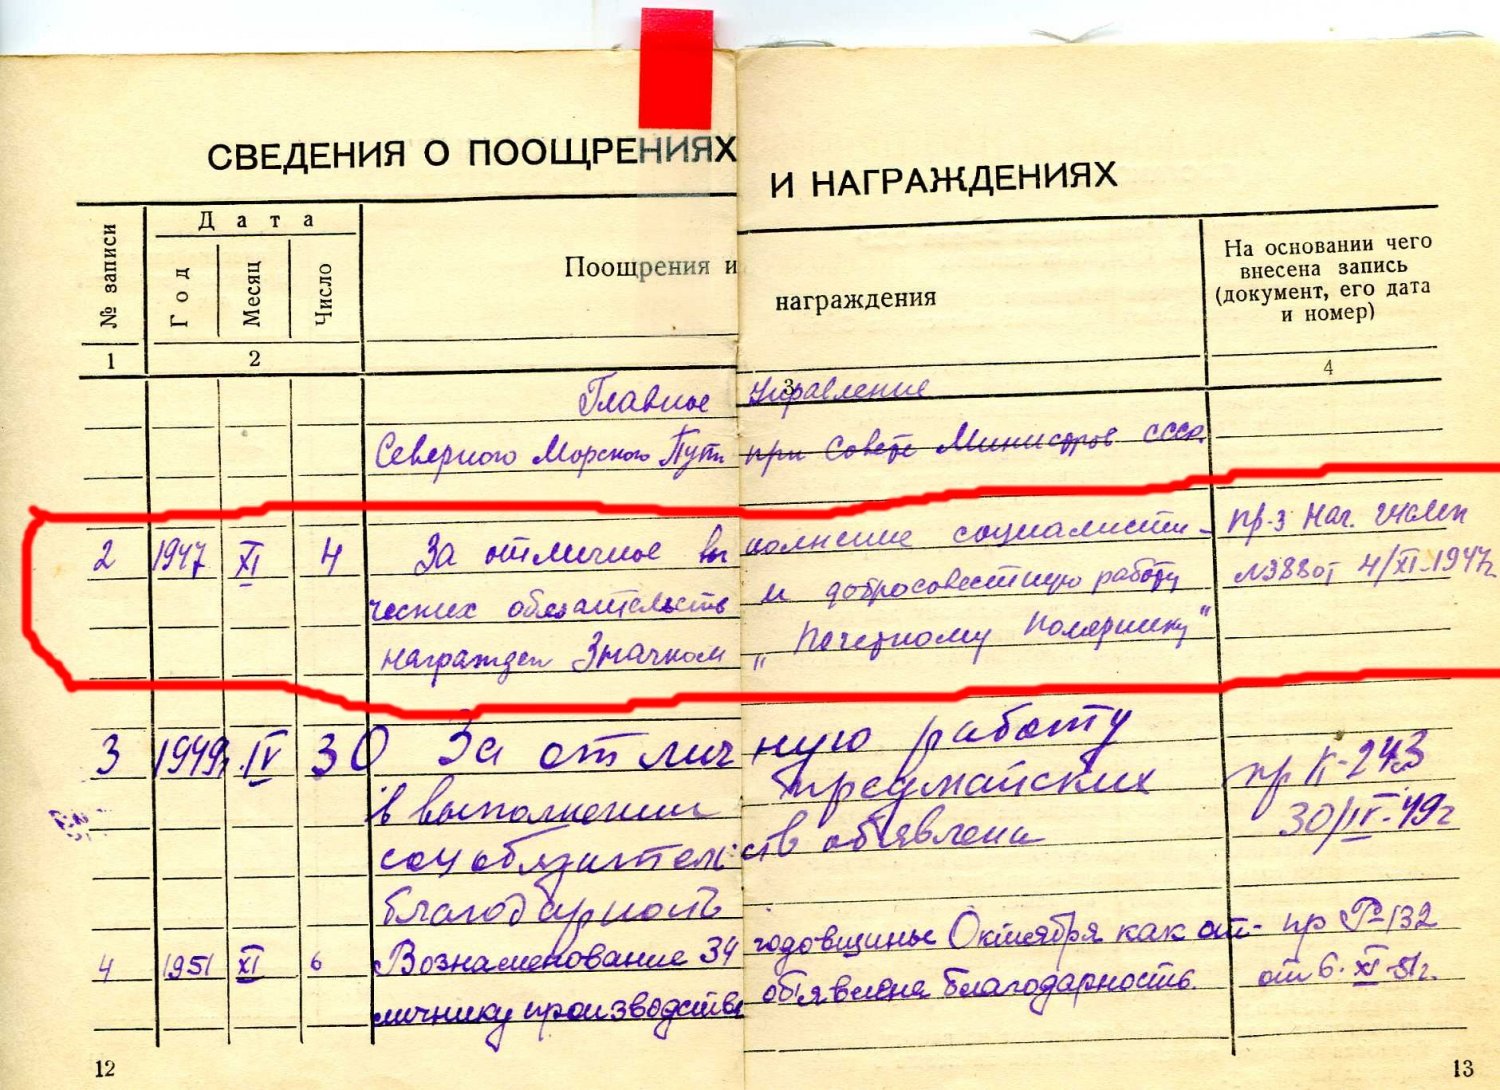 СВЕДЕНИЯ О ПООЩРЕНИЯХ И НАГРАЖДЕНИЯХ
№ записи
Дата
Год
Месяц
Число
Поощрения и награждения
На основании чего
внесена запись
(документ, его дата
и номер)
1 2 3 4
Главное Управление
Северного Морского Пути при Совете Министров СССР.
2 1947 XI 4 За отличное выполнение социалисти- пр-з Нач.
ческих обязательств и добросовестную работу №388 от 4/XI-1947г
награжден Значком „Почетному Полярнику"
3 1949г. IV 30 За отличную работу
в выполнении предмайских пр II-243
соцобязательств объявлена 30/IV-49г
благодарность
4 1951 XI 6 Вознаменование 34 годовщины Октября как от- пр Р-132
личнику производства объявлена благодарность. от 6.XI-51г.
12
13